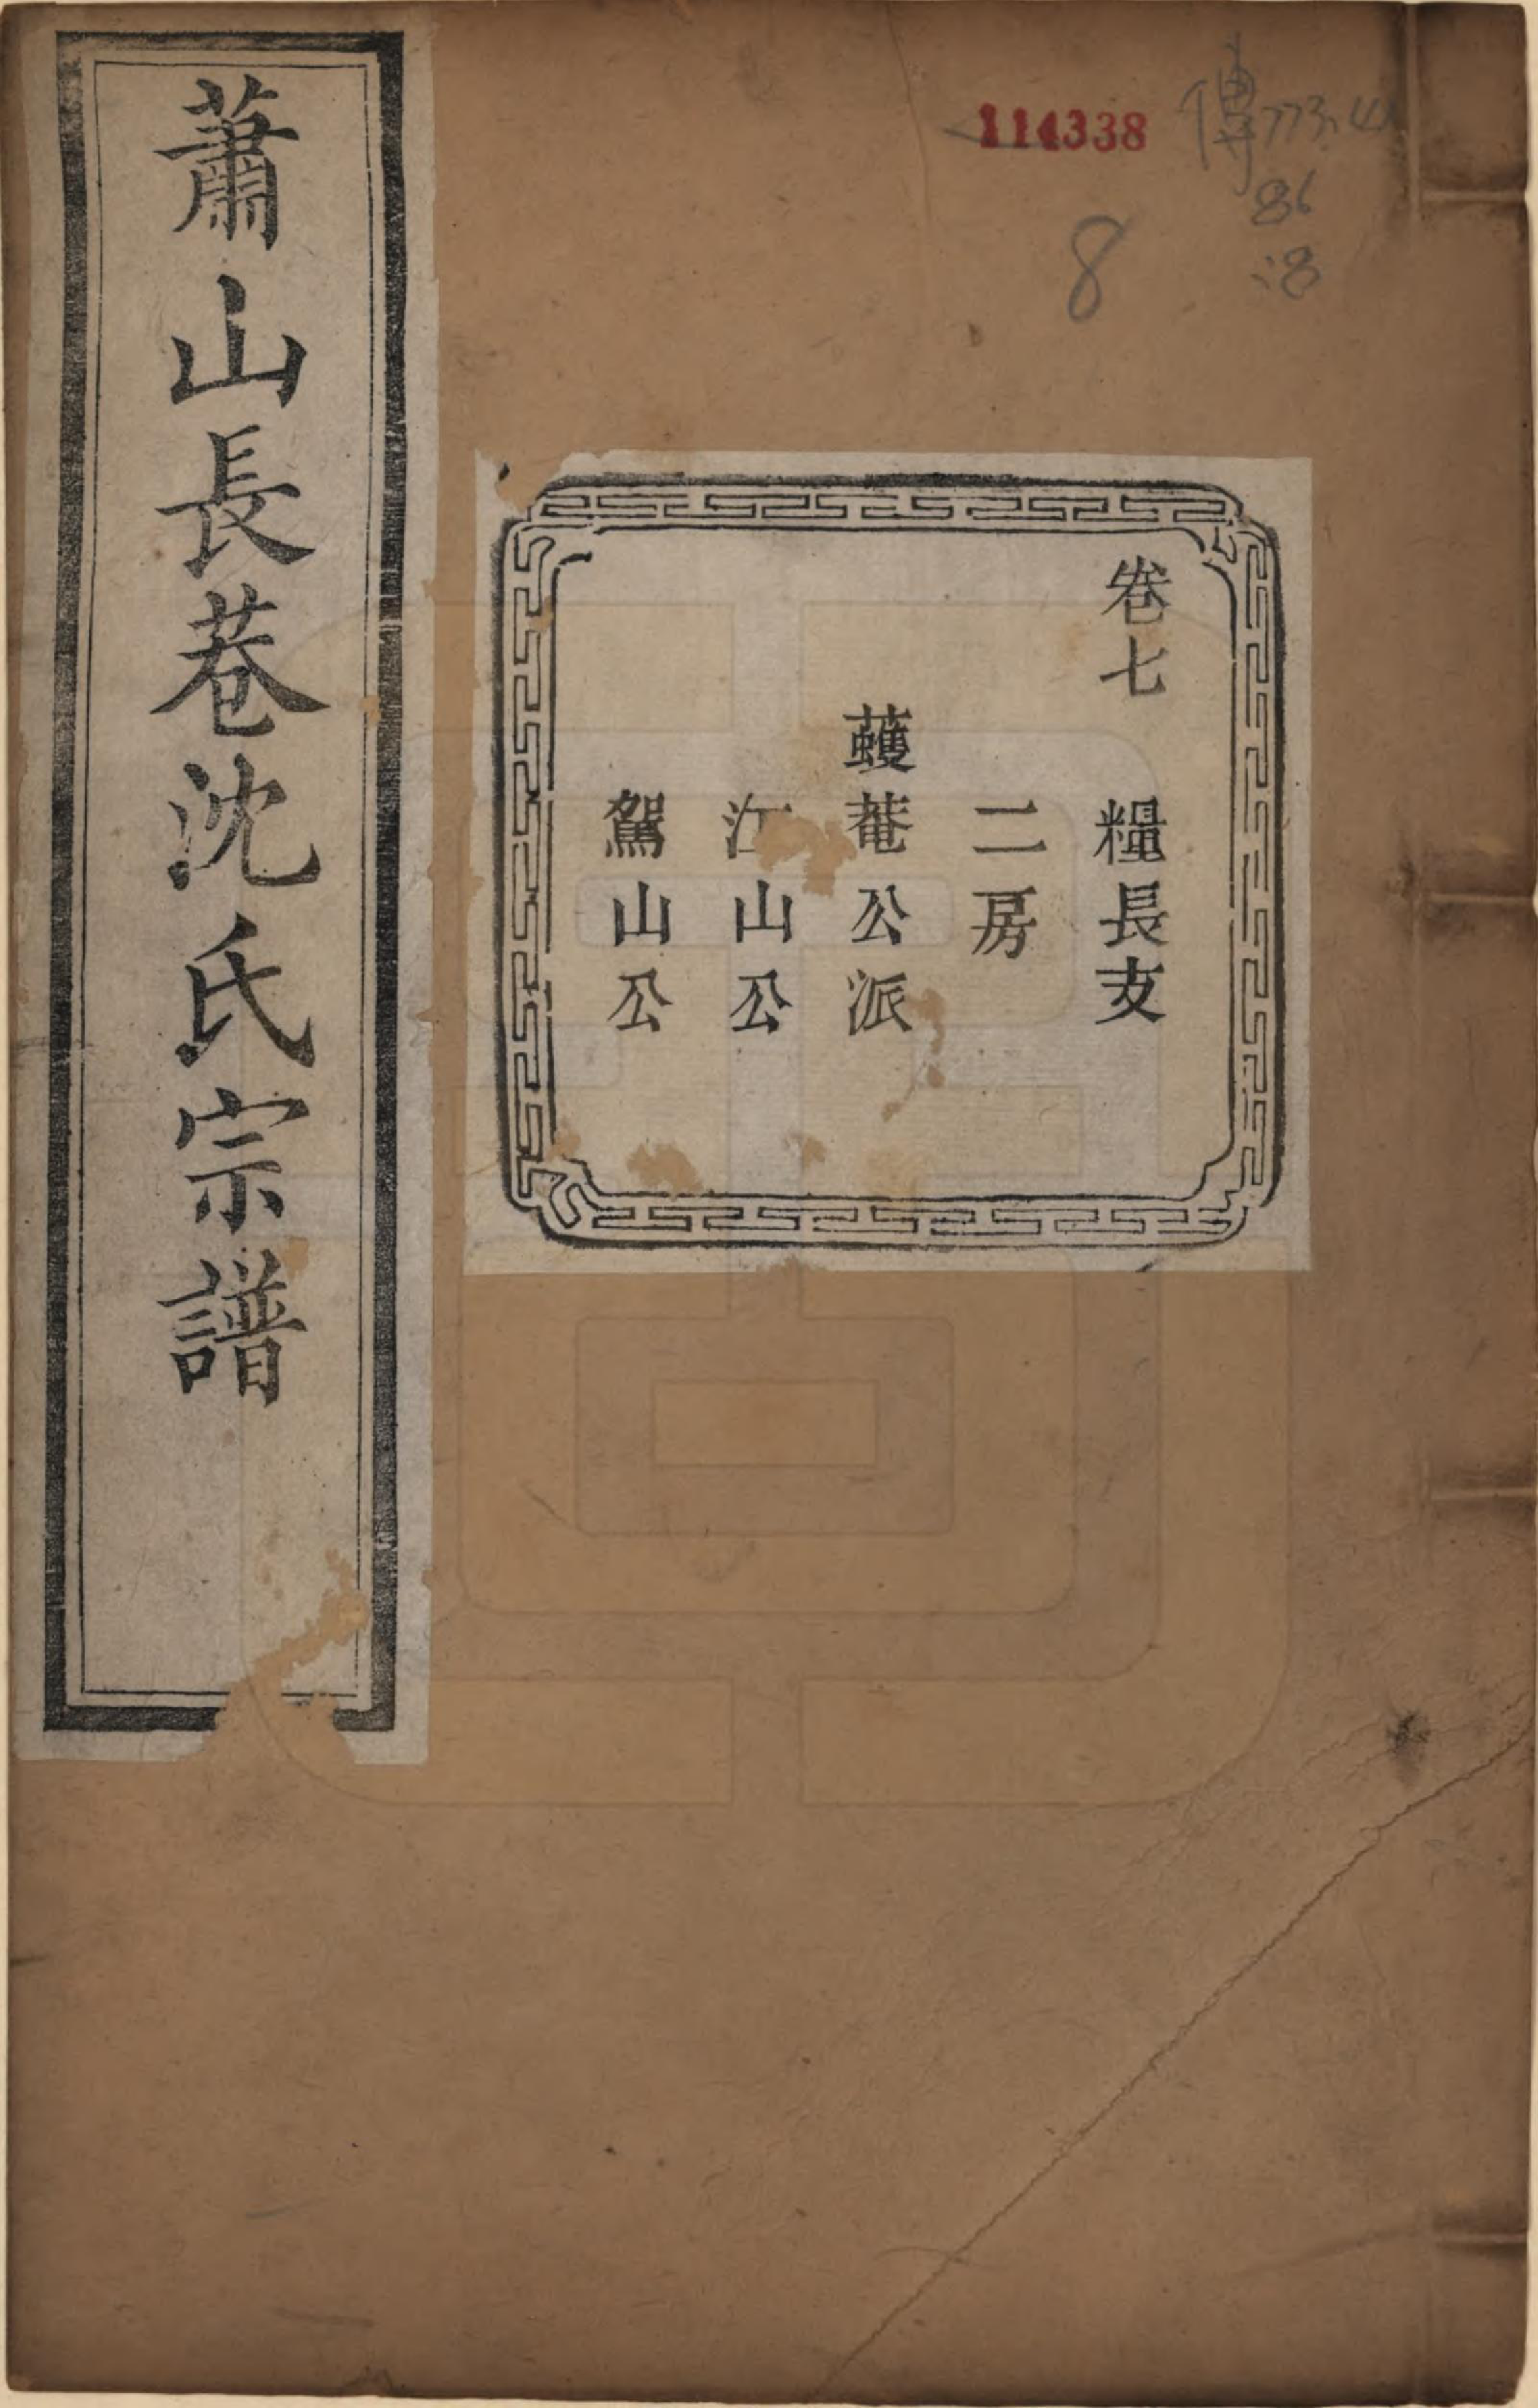 蕭山長巷沈氏宗譜
卷七 糧長支
二房
蠖菴公派
江山公
駕山公
114338
傳773.4
86
:8
8